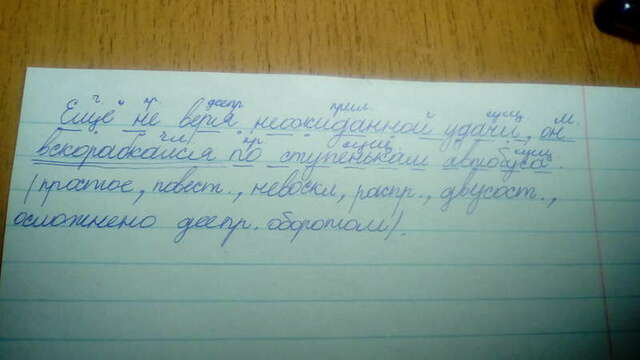 Ещё не веря неожиданной удачи, он
вскарабкался по ступенькам автобуса.
(простое, повест., невоскл, распр., двусост.,
осложнено деепр. оборотом).